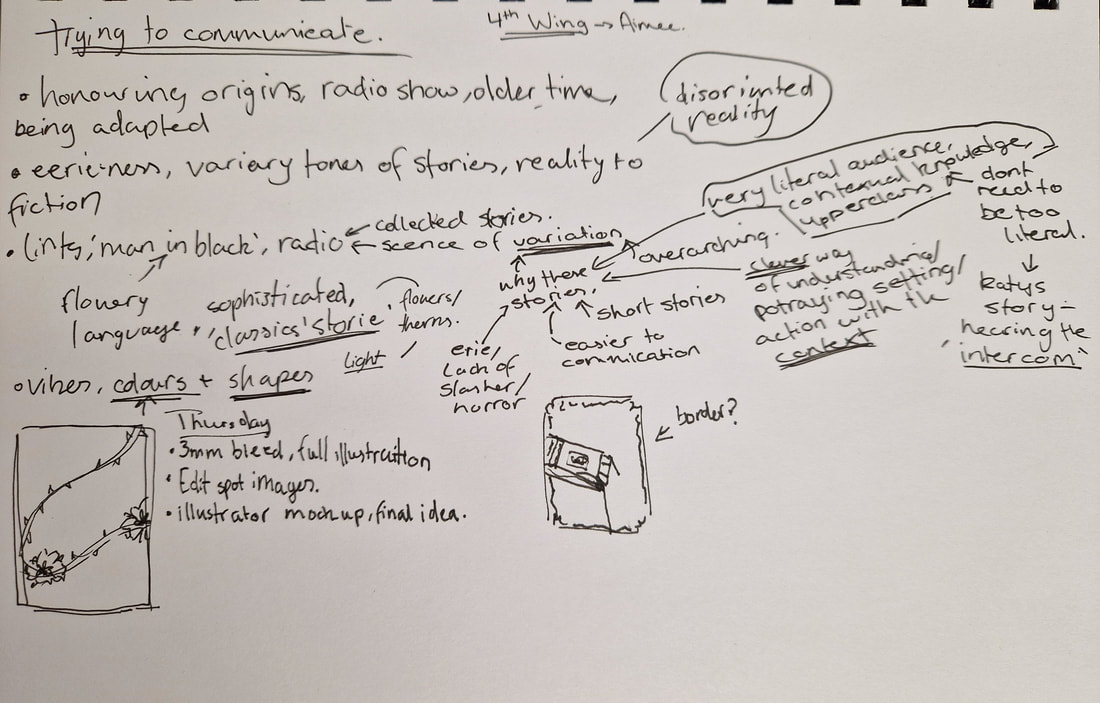 trying to communicate.
4th Wing → Aimee.
• honouring origins, radio show, older time,
being adapted
disoriented
reality
• eerie-ness, variary tones of stories, reality to
fiction
• links, 'man in black', radio
← collected stories.
← scence of variation
flowery
language
sophisticated,
'classics' storie
flowers/
therns.
light
why these
stories.
overarching.
very literal audience,
contexual knowledge,
upperclass
dont
need to
be too
literal.
katys
story -
hearing the
'intercom'
clever way
of understanding/
potraying setting/
action with the
context
short stories
easier to
commication
erie/
lack of
slasher/
horror
• vibes, colours + shapes
Thursday
• 3mm bleed, full illustraition
• Edit spot images.
• illustrator mockup, final idea.
border?